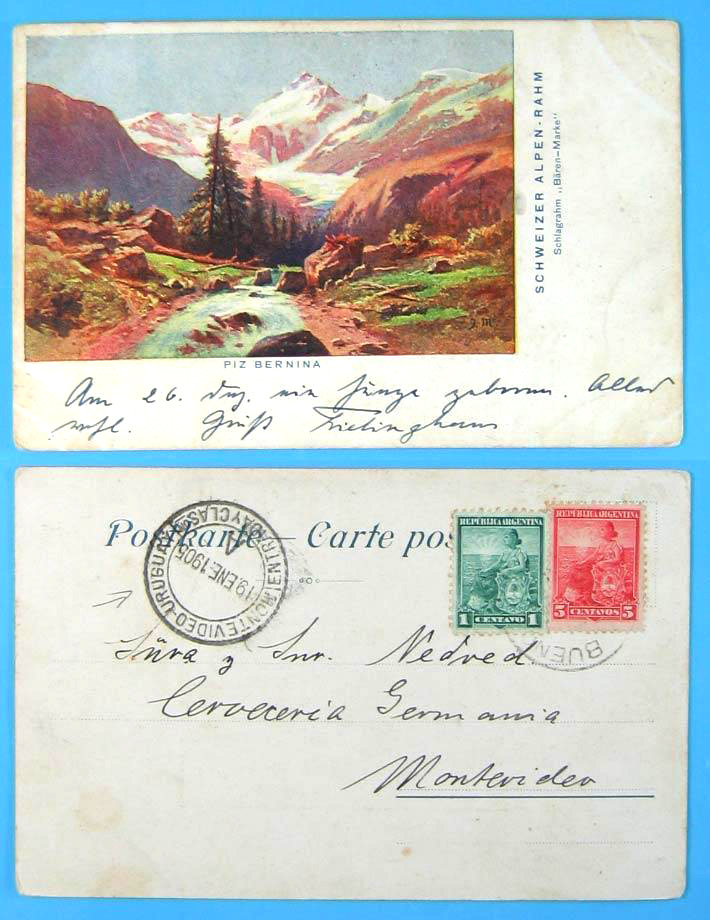 SCHWEIZER ALPEN-RAHM
Schlagrahm „Bären-Marke"
J. M.
PIZ BERNINA
Am 26. Dez. ein Junge geboren. Alles
wohl. Gruß
Postkarte — Carte pos
MONTEVIDEO-URUGUAY
19 ENE 1905
A
REPÚBLICA ARGENTINA
1 CENTAVO 1
REPÚBLICA ARGENTINA
5 CENTAVOS 5
BUEN
y Snr. Nedved
Cerveceria Germania
Montevideo